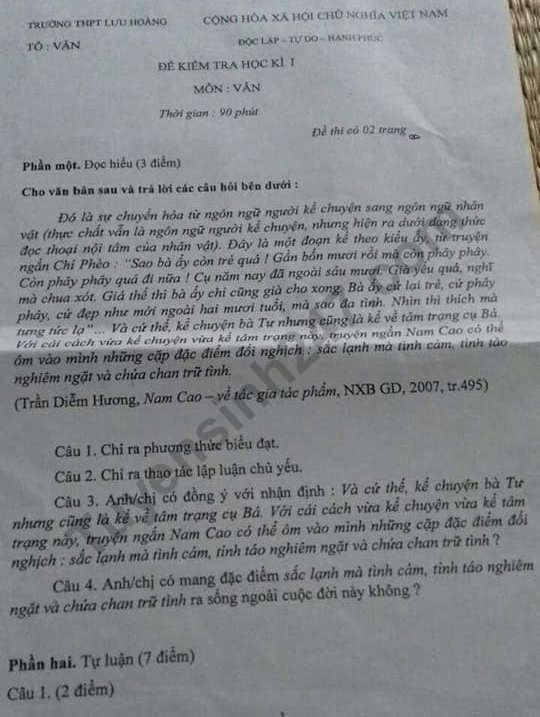 TRƯỜNG THPT LƯU HOÀNG
CỘNG HÒA XÃ HỘI CHỦ NGHĨA VIỆT NAM
TỔ : VĂN
ĐỘC LẬP – TỰ DO – HẠNH PHÚC
ĐỀ KIỂM TRA HỌC KÌ I
MÔN : VĂN
Thời gian : 90 phút
Đề thi có 02 trang
Phần một. Đọc hiểu (3 điểm)
Cho văn bản sau và trả lời các câu hỏi bên dưới :
Đó là sự chuyển hóa từ ngôn ngữ người kể chuyện sang ngôn ngữ nhân
vật (thực chất vẫn là ngôn ngữ người kể chuyện, nhưng hiện ra dưới dạng thức
độc thoại nội tâm của nhân vật). Đây là một đoạn kể theo kiểu ấy, từ truyện
ngắn Chí Phèo : “Sao bà ấy còn trẻ quá ! Gần bốn mươi rồi mà còn phây phây.
Còn phây phây quá đi nữa ! Cụ năm nay đã ngoài sáu mươi. Già yếu quá, nghĩ
mà chua xót. Giá thế thì bà ấy chỉ cũng già cho xong. Bà ấy cứ lại trẻ, cứ phây
phây, cứ đẹp như mới ngoài hai mươi tuổi, mà sao đa tình. Nhìn thì thích mà
tưng tức lạ”... Và cứ thế, kể chuyện bà Tư nhưng cũng là kể về tâm trạng cụ Bá.
Với cái cách vừa kể chuyện vừa kể tâm trạng này, truyện ngắn Nam Cao có thể
ôm vào mình những cặp đặc điểm đối nghịch : sắc lạnh mà tình cảm, tỉnh táo
nghiêm ngặt và chứa chan trữ tình.
(Trần Diễm Hương, Nam Cao – về tác gia tác phẩm, NXB GD, 2007, tr.495)
Câu 1. Chỉ ra phương thức biểu đạt.
Câu 2. Chỉ ra thao tác lập luận chủ yếu.
Câu 3. Anh/chị có đồng ý với nhận định : Và cứ thế, kể chuyện bà Tư
nhưng cũng là kể về tâm trạng cụ Bá. Với cái cách vừa kể chuyện vừa kể tâm
trạng này, truyện ngắn Nam Cao có thể ôm vào mình những cặp đặc điểm đối
nghịch : sắc lạnh mà tình cảm, tỉnh táo nghiêm ngặt và chứa chan trữ tình ?
Câu 4. Anh/chị có mang đặc điểm sắc lạnh mà tình cảm, tỉnh táo nghiêm
ngặt và chứa chan trữ tình ra sống ngoài cuộc đời này không ?
Phần hai. Tự luận (7 điểm)
Câu 1. (2 điểm)